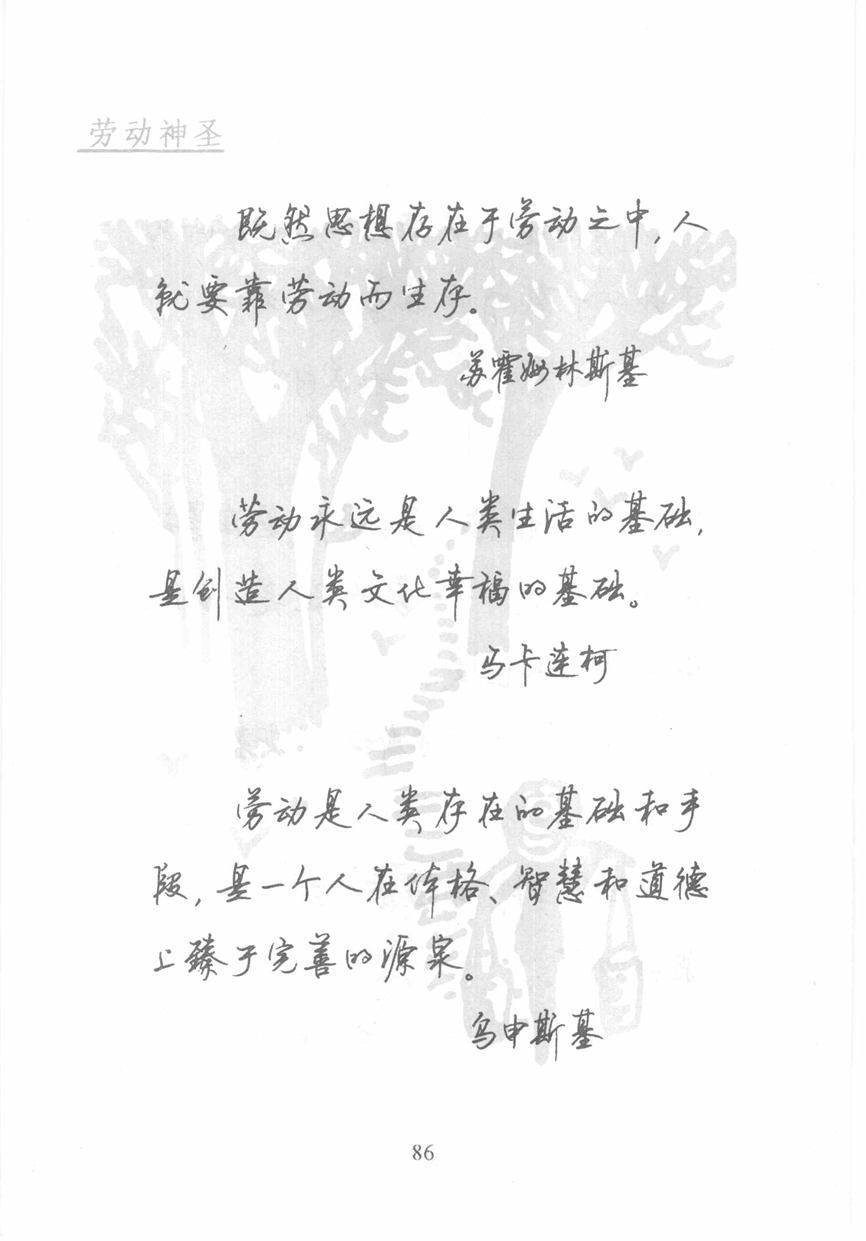 劳动神圣
既然思想存在于劳动之中，人
就要靠劳动而生存。
苏霍姆林斯基
劳动永远是人类生活的基础，
是创造人类文化幸福的基础。
马卡连柯
劳动是人类存在的基础和手
段，是一个人在体格、智慧和道德
上臻于完善的源泉。
乌申斯基
86